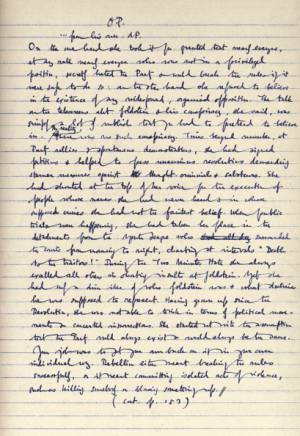 O.P.
... from his own. NP.
On the one hand she took it for granted that nearly everyone,
at any rate nearly everyone who was not in a privileged
position, secretly hated the Party & would break the rules if it
were safe to do so. On the other hand she refused to believe
in the existence of any widespread, organised opposition. The talk
about Goldstein & his conspiracy, she said, was
simply a lot of rubbish that you had to pretend to believe
in. Times beyond number, at
Party rallies & spontaneous demonstrations, she had signed
petitions & helped to pass unanimous resolutions demanding
sterner measures against thought criminals & saboteurs. She
had shouted at the top of her voice for the execution of
people whose names she had never heard & in whose
supposed crimes she had not the faintest belief. When public
trials were happening, she had taken her place in the
detachments from the Youth League who surrounded
the courts from morning to night, chanting at intervals "Death
to the traitors!" During the Two Minutes Hate she always
excelled all others in shouting insults at Goldstein. Yet she
had only a dim idea of who Goldstein was & what doctrine
he was supposed to represent. Having grown up since the
Revolution, she was not able to think in terms of political move-
ments & concerted insurrections. She started out with the assumption
that the Party would always exist & would always be the same.
individual way. Rebellion
successfully, or at most committing isolated acts of violence,
such as killing somebody or blowing something up.
(cont. p. 153)